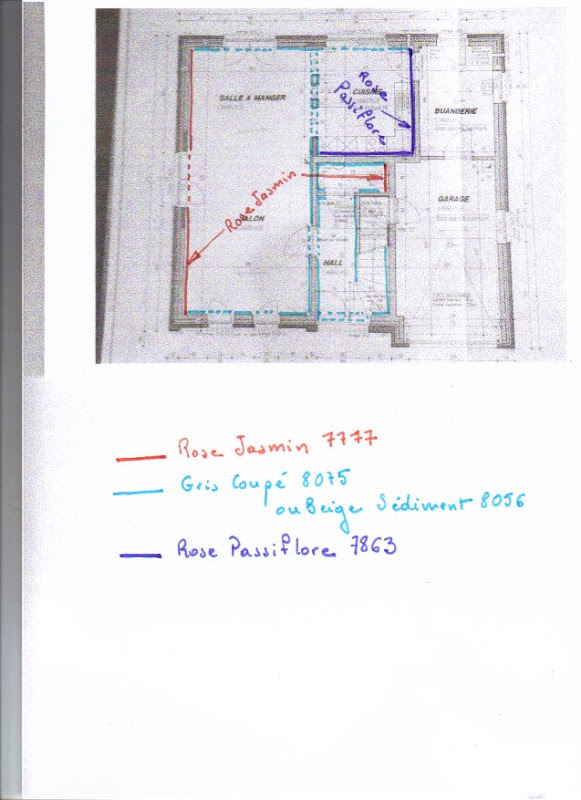 SALLE A MANGER
CUISINE
Rose
Passiflore
BUANDERIE
Rose Jasmin
SALON
GARAGE
HALL
Rose Jasmin 7777
Gris Coupé 8075
ou Beige Sédiment 8056
Rose Passiflore 7863